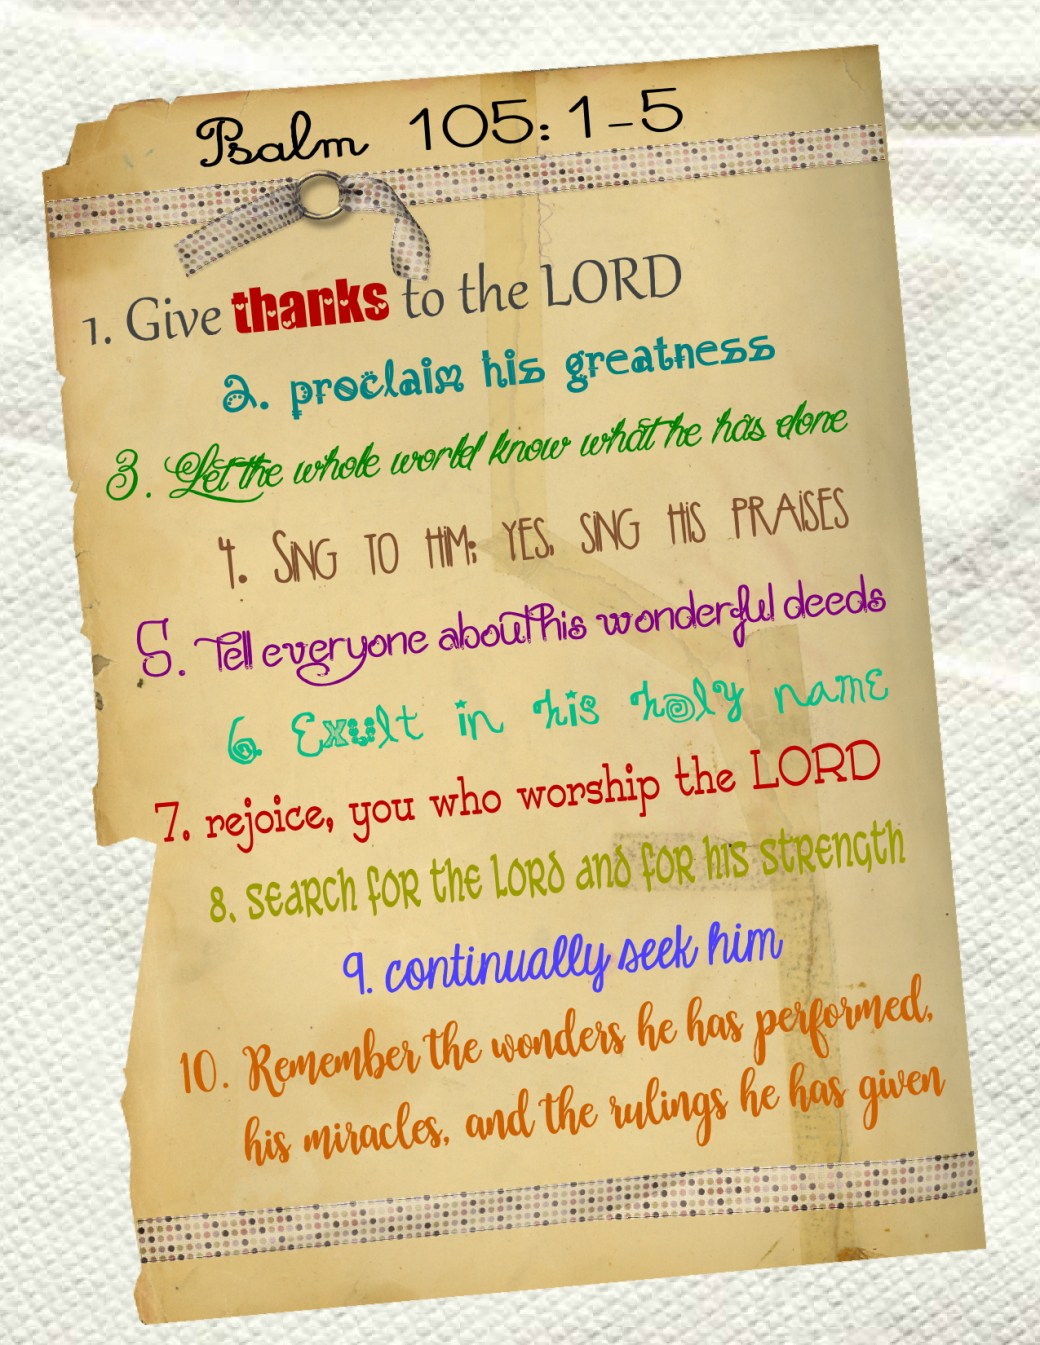 Psalm 105:1-5
1. Give thanks to the LORD
2. proclaim his greatness
3. Let the whole world know what he has done
4. Sing to him; yes, sing his praises
5. Tell everyone about his wonderful deeds
6. Exult in his holy name
7. rejoice, you who worship the LORD
8. search for the Lord and for his strength
9. continually seek him
10. Remember the wonders he has performed,
his miracles, and the rulings he has given